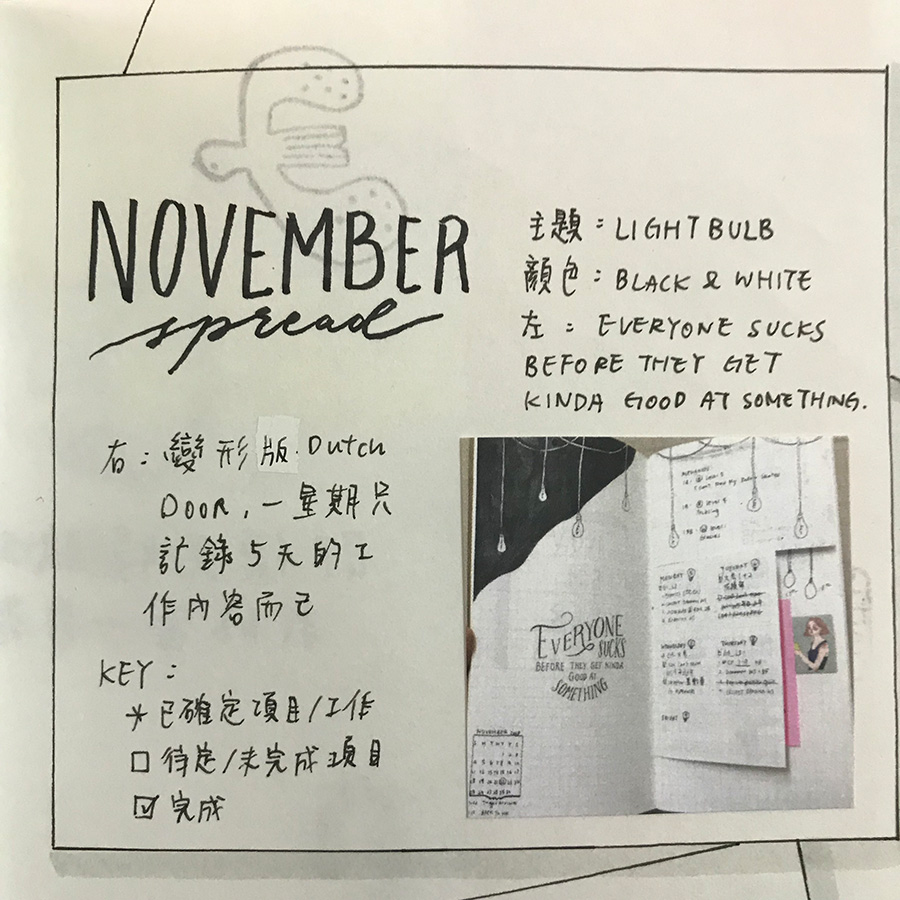 NOVEMBER
spread
主題：LIGHT BULB
顏色：BLACK & WHITE
左：EVERYONE SUCKS
BEFORE THEY GET
KINDA GOOD AT SOMETHING.
右：變形版．Dutch
DOOR，一星期只
記錄5天的工
作內容而已
KEY：
* 已確定項目/工作
□ 待定/未完成項目
☑ 完成
EVERYONE
SUCKS
BEFORE THEY GET KINDA
GOOD AT
SOMETHING
NOVEMBER
S M T W T F S
MONDAY
TUESDAY
WEDNESDAY
THURSDAY
FRIDAY